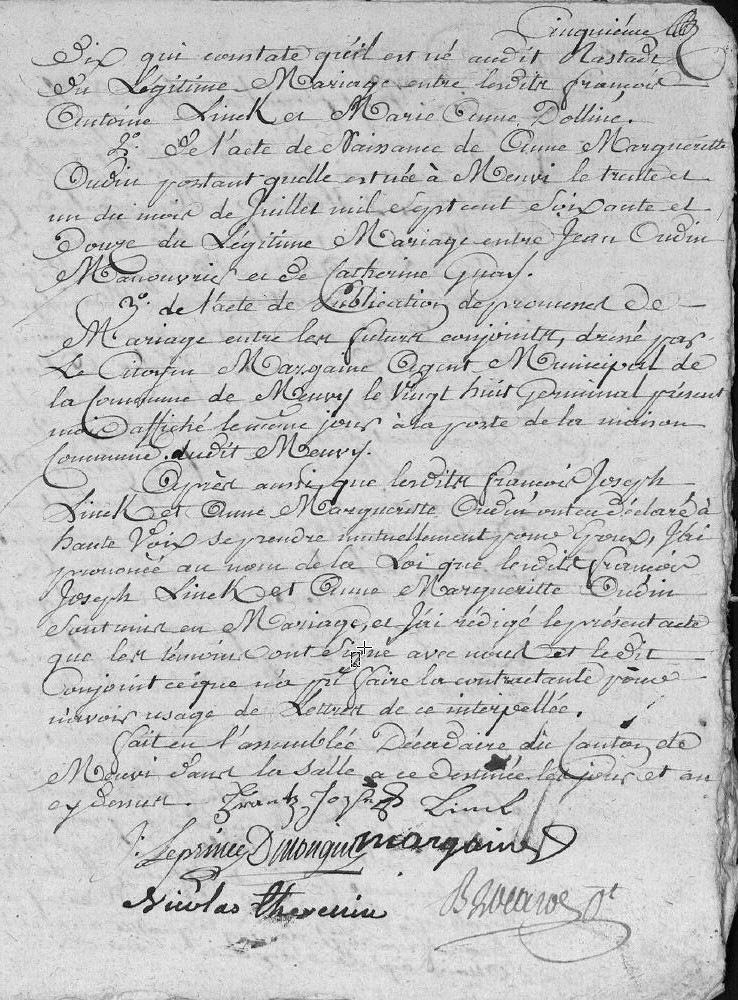 Cinquième
Dix qui constate qu'il est né audit Rastadt
du Légitime Mariage entre lesdits françois
Antoine Linck et Marie Anne Dolliné.
2.o De l'acte de Naissance de Anne Margueritte
Oudin portant quelle est née à Meuvi le trente et
un du mois de Juillet mil Sept cent Soixante et
Douze du Légitime Mariage entre Jean Oudin
Manouvrier et de Catherine
3.o de l'acte de Publication de promesses De
Mariage entre les futurs conjoints, dressé par
Le Citoyen Margaine Agent Municipal de
la Commune de Meuvy le Vingt huit Germinal présent
mois affiché le même jour à la porte de la maison
Commune dudit Meuvy.
Après aussi que lesdits françois Joseph
Linck et Anne Margueritte Oudin ont eu déclaré à
haute Voix se prendre mutuellement pour Epoux, J'ai
prononcé au nom de la Loi que lesdits françois
Joseph Linck et Anne Margueritte Oudin
Sont unis en Mariage, et J'ai rédigé le présent acte
que les témoins ont Signé avec nous et le dit
Conjoint ce que n'a pu faire la contractante pour
n'avoir usage de Lettres de ce interpellée.
fait en l'assemblée Décadaire du Canton de
Meuvi dans la Salle a ce destinée les jour et an
cy dessus. Frantz Joseph Linck
J. Leprince Dmongin margaine
Nicolas thevenin Brocard